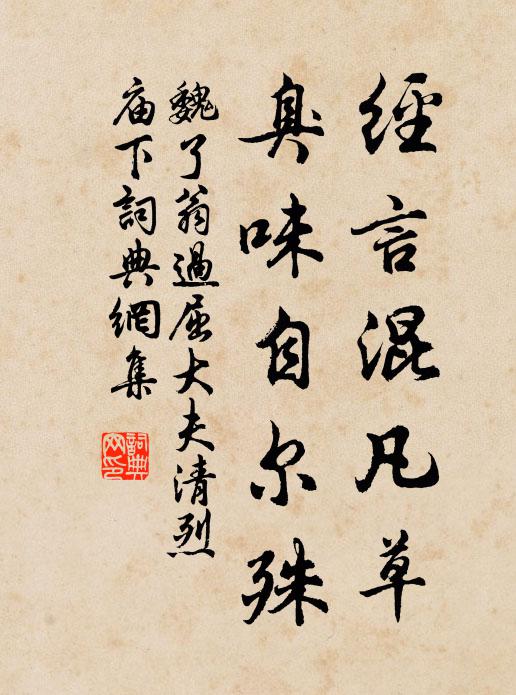 經言混凡草
臭味自尔殊
魏了翁過屈大夫清烈
庙下詞典網集
詞典网印